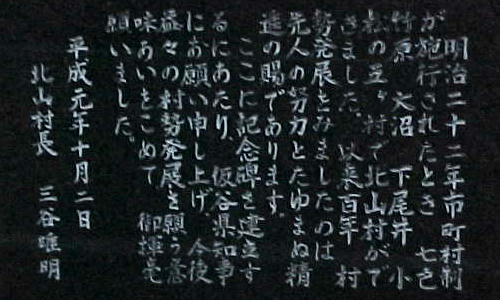 明治二十二年市町村制
が施行されたとき　七色
竹原　大沼　下尾井　小
松の五ヶ村で北山村がで
きました。以来百年　村
勢発展をみましたのは
先人の努力とたゆまぬ精
進の賜であります。
ここに記念碑を建立す
るにあたり、仮谷県知事
にお願い申し上げ、今後
益々の村勢発展を願う意
味あいをこめて　御揮毫
願いました。
平成元年十月二日
北山村長　三谷唯明